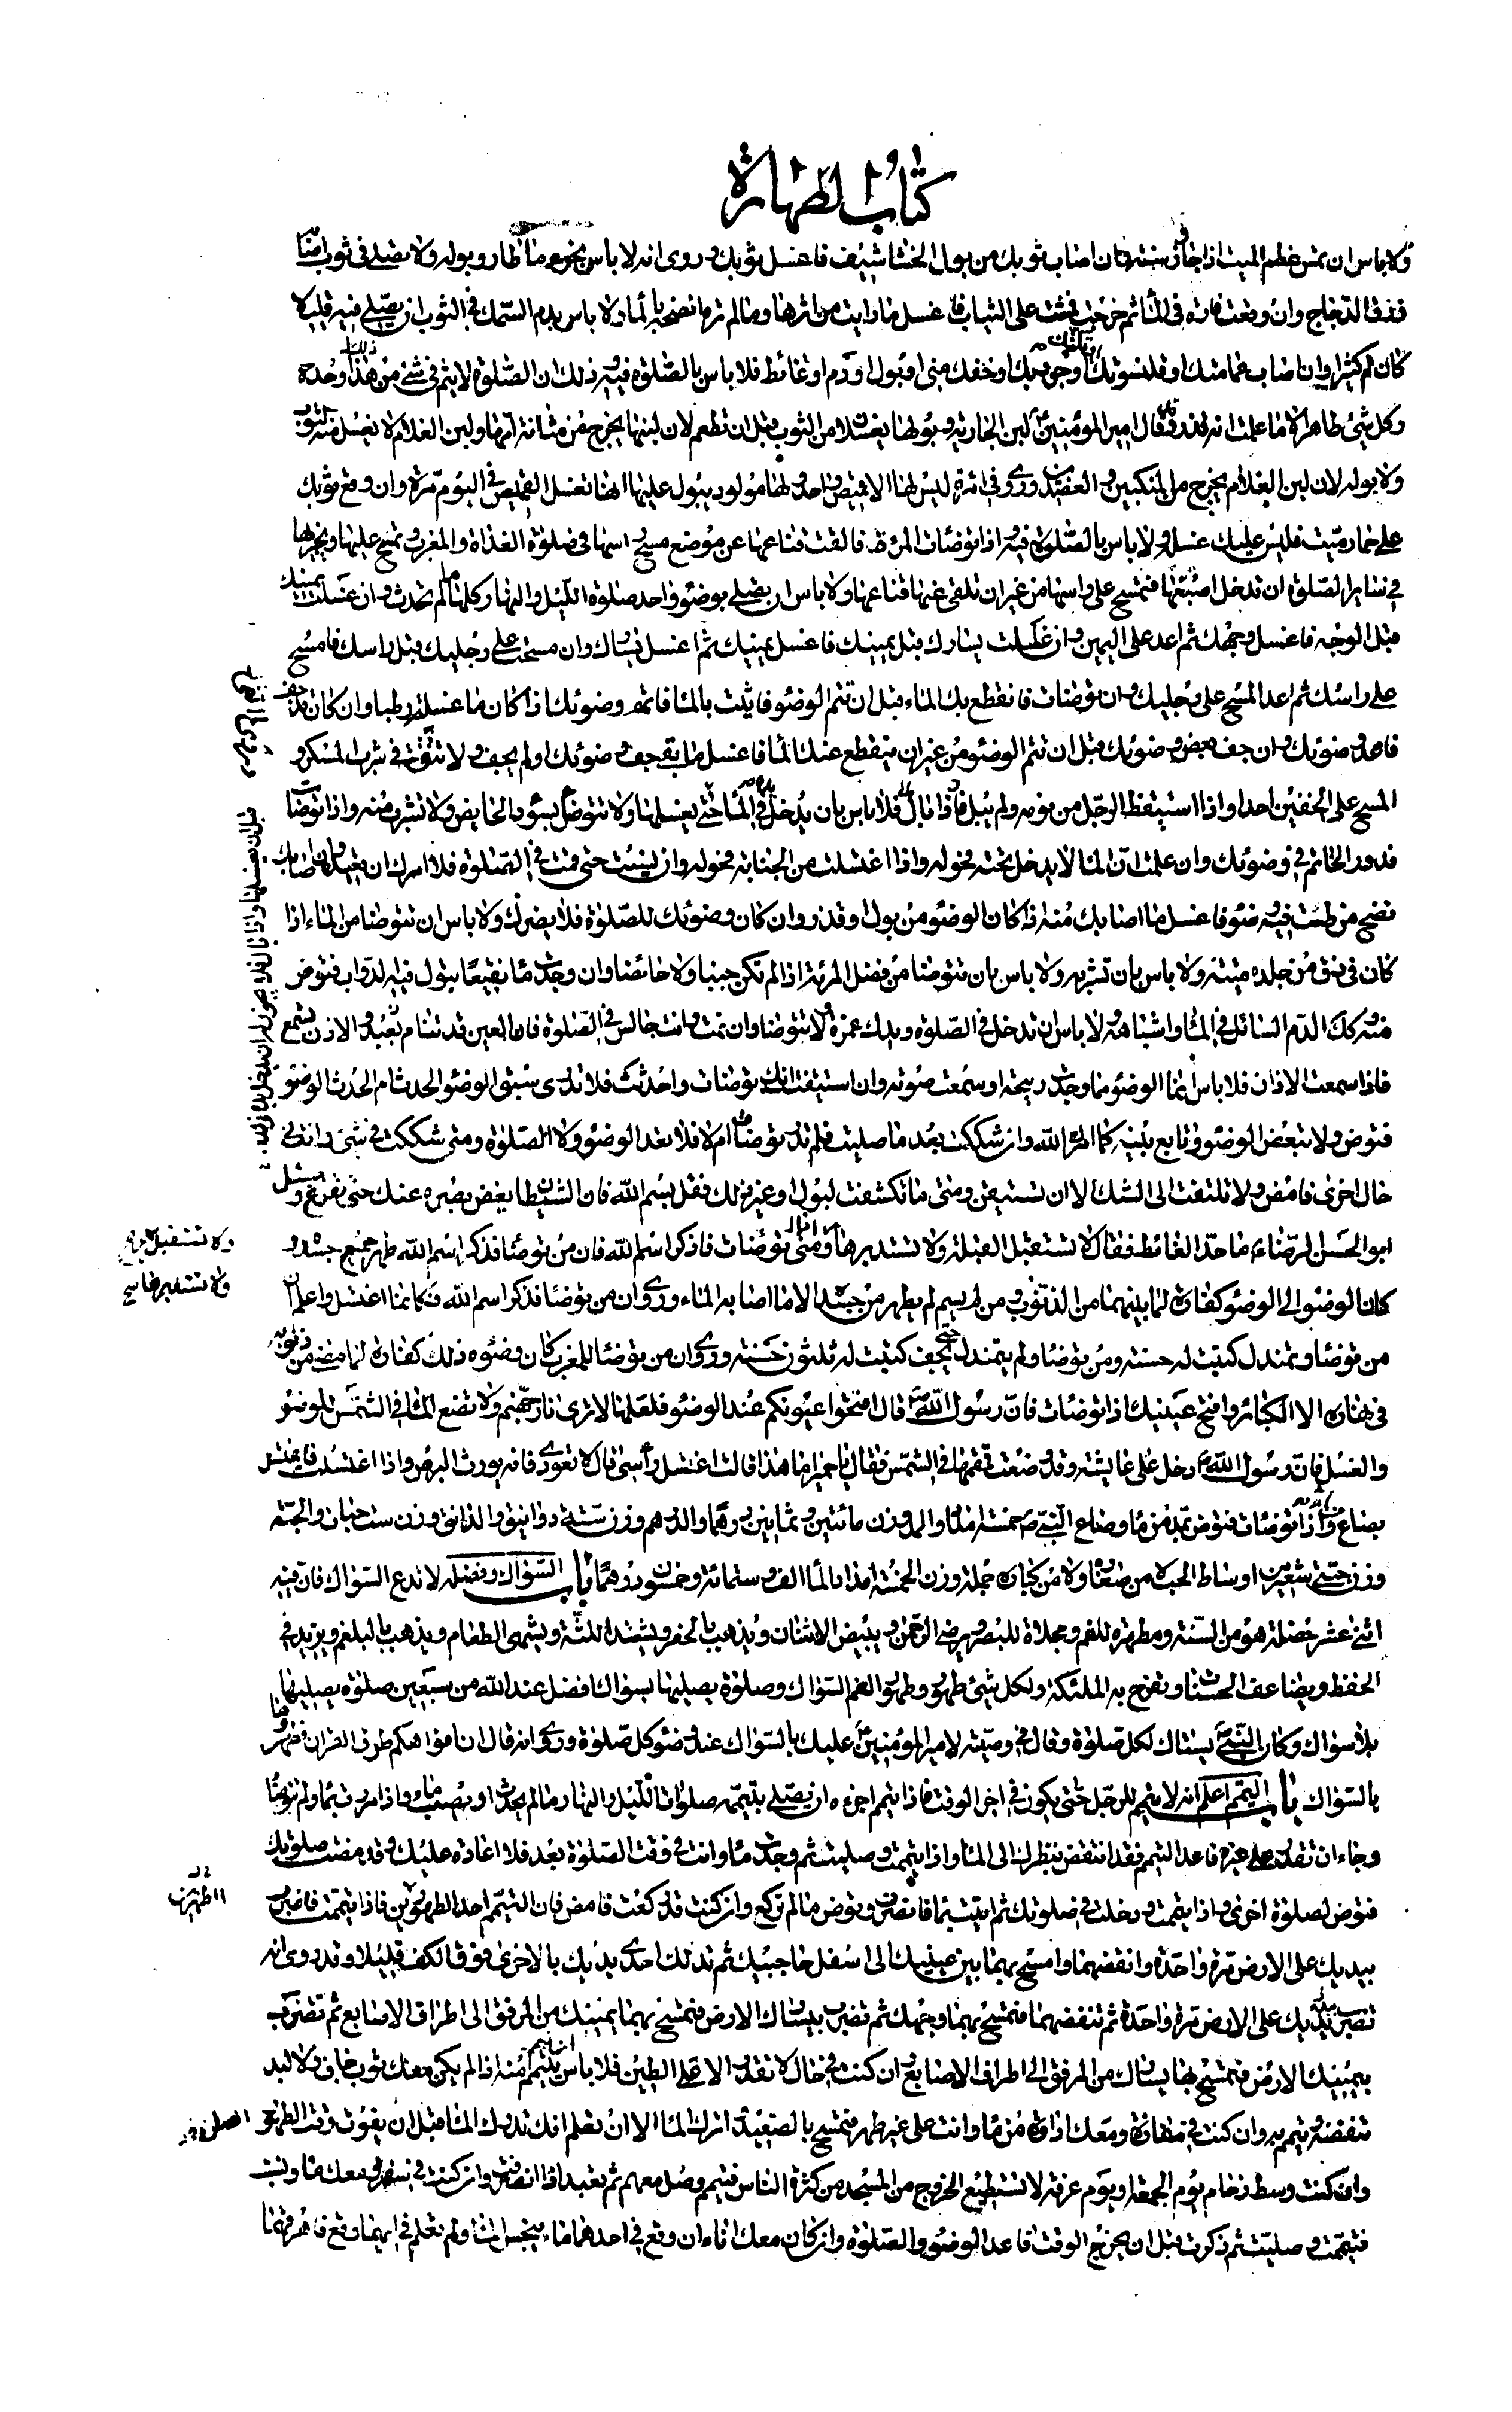 كتاب الطهارة
ولا باس ان تمس عظم الميت اذا جاز سنة فان اصاب ثوبك من بول الخشاشيف فاغسل ثوبك وروى انه لا باس بخرء ما طار وبوله ولا تصلى فى ثوب اصابه
ذرق الدجاج وان وقعت فارة فى الماء ثم خرجت فمشت على الثياب فاغسل ما رايت من اثرها وما لم تره انضحه بالماء ولا باس بدم السمك فى الثوب ان يصلى فيه قليلا
كان ام كثيرا وان اصاب عمامتك او قلنسوتك او تكتك او جوربك او خفك منى او بول او دم او غائط فلا باس بالصلوة فيه وذلك ان الصلوة لا يتم فى شئ من هذا وحده
وكل شئ طاهر الا ما علمت انه قذر وقال امير المؤمنين لبن الجارية وبولها يغسلان من الثوب قبل ان تطعم لان لبنها يخرج من مثانة امها ولبن الغلام لا يغسل منه الثوب
ولا بوله لان لبن الغلام يخرج من المنكبين والعضدين وروى فى امرءة ليس لها الا قميص واحد ولها مولود يبول عليها انها تغسل القميص فى اليوم مرة وان وقع ثوبك
على حمار ميت فليس عليك غسله ولا باس بالصلوة فيه واذا توضات المرئة فالقت قناعها عن موضع مسح راسها فى صلوة الغداة والمغرب وتمسح عليها ويجزيها
فى ساير الصلوة ان تدخل اصبعها فتمسح على راسها من غير ان تلقى عنها قناعها ولا باس ان يصلى بوضوء واحد صلوة الليل والنهار كلها ما لم تحدث وان غسلت يمينك
قبل الوجه فاغسل وجهك ثم اعد على اليمين وان غسلت يسارك قبل يمينك فاغسل يمينك ثم اغسل يسارك وان مسحت على رجليك قبل راسك فامسح
على راسك ثم اعد المسح على رجليك وان توضات فانقطع بك الماء قبل ان تتم الوضوء فاتيت بالماء فاتمم وضوئك اذا كان ما غسلته رطبا وان كان قد جف
فاعد وضوئك وان جف بعض وضوئك قبل ان تتم الوضوء من غير ان ينقطع عنك الماء فاغسل ما بقى جف وضوئك او لم يجف ولا تتق فى شرب المسكر و
المسح على الخفين احدا واذا استيقظ الرجل من نومه ولم يبل فلا باس بان يدخل يده فى الماء حتى يغسلها ولا تتوضا بسؤر الحايض ولا تشرب منه واذا توضات
فدور الخاتم فى وضوئك وان علمت ان الماء لا يدخل تحته فحوله واذا اغتسلت من الجنابة فحوله وان نسيت حتى قمت فى الصلوة فلا امرك ان تعيد وان اصابك
نضح من طست فيه وضوء فاغسل ما اصابك منه اذا كان الوضوء من بول او قذر وان كان وضوئك للصلوة فلا يضرك ولا باس ان تتوضا من الماء اذا
كان فى زق من جلدة ميتة ولا باس بان تشربه ولا باس بان تتوضا من فضل المرئة اذا لم تكن جنبا ولا حائضا وان وجدت ماء نقيعا يبول فيه الدواب فتوض
منه وكك الدم السائل فى الماء واشباهه ولا باس ان تدخل فى الصلوة وبيدك غمزة ولا تتوضا وان نمت وانت جالس فى الصلوة فان العين قد تنام بعبد والاذن تسمع
فاذا سمعت الاذان فلا باس انما الوضوء مما وجدت ريحه او سمعت صوته وان استيقنت انك توضات واحدثت فلا تدرى سبق الوضوء الحدث ام الحدث الوضوء
فتوض ولا تبعض الوضوء وتابع بينه كما امر الله وان شككت بعد ما صليت فلم تدر توضات ام لا فلا تعد الوضوء ولا الصلوة ومتى شككت فى شئ وانت فى
حال اخرى فامض ولا تلتفت الى الشك الا ان تستيقن ومتى ما تكشفت لبول او غير ذلك فقل بسم الله فان الشيطان يغض بصره عنك حتى تفرغ وسئل
ابو الحسن الرضاء ما حد الغائط فقال لا تستقبل القبلة ولا تستدبرها ومتى توضات فاذكر اسم الله فان من توضا فذكر اسم الله طهر جميع جسده و
كان الوضوء الى الوضوء كفارة لما بينهما من الذنوب ومن لم يسم لم يطهر من جسده الا ما اصابه الماء وروى ان من توضا فذكر اسم الله فكانما اغتسل واعلم ان
من توضا وتمندل كتبت له حسنة ومن توضا ولم يتمندل حتى يجف كتبت له ثلثون حسنة وروى ان من توضا للمغرب كان وضوءه ذلك كفارة لما مضى من ذنوبه
فى نهاره الا الكبائر وافتح عينيك اذا توضات فان رسول الله قال افتحوا عيونكم عند الوضوء فلعلها لا ترى نار جهنم ولا تضع الماء فى الشمس للوضوء
والغسل فان رسول الله دخل على عايشة وقد وضعت قمقمها فى الشمس فقال يا حميرا ما هذا قالت اغتسل راسى قال لا تعودى فانه يورث البرص واذا اغتسلت فاغتسل
بصاع من ماء واذا توضات فتوض بمد من ماء وصاع النبى ص خمسة امداد والمد وزن مائتين وثمانين درهما والدرهم وزن ستة دوانيق والدانق وزن ست حبات والحبة
وزن حبتى شعير من اوساط الحب لا من صغاره ولا من كباره جملة وزن الخمسة امداد بالماء الف وستمائة وخمسون درهما باب السواك وفضله لا تدع السواك فان فيه
اثنى عشر خصلة هو من السنة ومطهرة للفم ومجلاة للبصر ويرضى الرحمن ويبيض الاسنان ويذهب بالحفر ويشد اللثة ويشهى الطعام ويذهب بالبلغم ويزيد فى
الحفظ ويضاعف الحسنات وتفرح به الملئكة ولكل شئ طهور وطهور الفم السواك وصلوة يصليها بسواك افضل عند الله من سبعين صلوة يصليها
بلا سواك وكان النبى يستاك لكل صلوة وقال فى وصيته لامير المؤمنين عليك بالسواك عند وضوء كل صلوة وروى انه قال ان افواهكم طرق القران فطهروها
بالسواك باب التيمم اعلم انه لا يتيمم للرجل حتى يكون فى اخر الوقت فاذا تيمم اجزءه ان يصلى بتيممه صلوات الليل والنهار ما لم يحدث او يصيب ماء واذا مر بماء ولم يتوضا
وجاء ان تقدر على غيره فاعد التيمم فقد انتقض بنظرك الى الماء واذا تيممت وصليت ثم وجدت ماء وانت فى وقت الصلوة بعد فلا اعادة عليك وقد مضت صلوتك
فتوض لصلوة اخرى واذا تيممت ودخلت فى صلوتك ثم اتيت بماء فانصرف وتوض ما لم تركع وان كنت قد ركعت فامض فان التيمم احد الطهورين فاذا تيممت فاضرب
بيديك على الارض مرة واحدة وانفضهما وامسح بهما بين عينيك الى اسفل حاجبيك ثم تدلك احدى يديك بالاخرى فوق الكف قليلا وقد روى انه
تضرب بيديك على الارض مرة واحدة ثم تنفضهما فتمسح بهما وجهك ثم تضرب بيسارك الارض فتمسح بهما يمينك من المرفق الى اطراف الاصابع ثم تضرب
بيمينك الارض فتمسح بها يسارك من المرفق الى اطراف الاصابع وان كنت فى حال لا تقدر الا على الطين فلا باس ان تيمم منه اذا لم يكن معك ثوب جاف ولا لبد
تنفضه وتيمم به وان كنت فى مفازة ومعك اداوة من ماء وانت على غير طهر فتمسح بالصعيد واترك الماء الا ان تعلم انك تدرك الماء قبل ان يفوت وقت الطهر
وان كنت وسط زحام يوم الجمعة او يوم عرفة لا تستطيع الخروج من المسجد من كثرة الناس فتيمم وصل معهم ثم تعيد اذا انصرفت وان كنت فى سفر ومعك ماء ونسيت
فتيممت وصليت ثم ذكرت قبل ان يخرج الوقت فاعد الوضوء والصلوة وان كان معك اناءان وقع فى احدهما ماء ينجس الماء ولم تعلم فى ايهما وقع فاهرقهما
ولا تستقبل
ولا تستدبرها